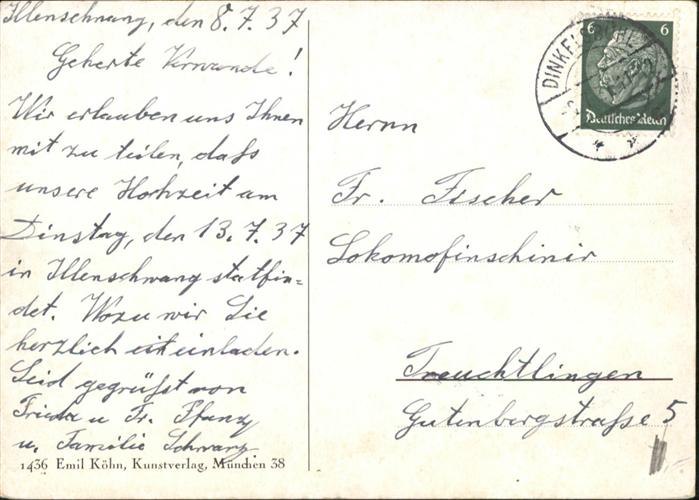 Illenschwang, den 8.7.37
Geherte Verwande!
Wir erlauben uns Ihnen
mit zu teilen, daß
unsere Hochzeit am
Dinstag, den 13.7.37
in Illenschwang statfin=
det. Wozu wir Sie
herzlich einladen.
Seid gegrüßt von
Frieda u Fr.
u. Familie Schwarz
1436 Emil Köhn, Kunstverlag, München 38
DINKELSBÜHL
6 6
Deutsches Reich
Herrn
Fr. Fischer
Treuchtlingen
Gutenbergstraße 5